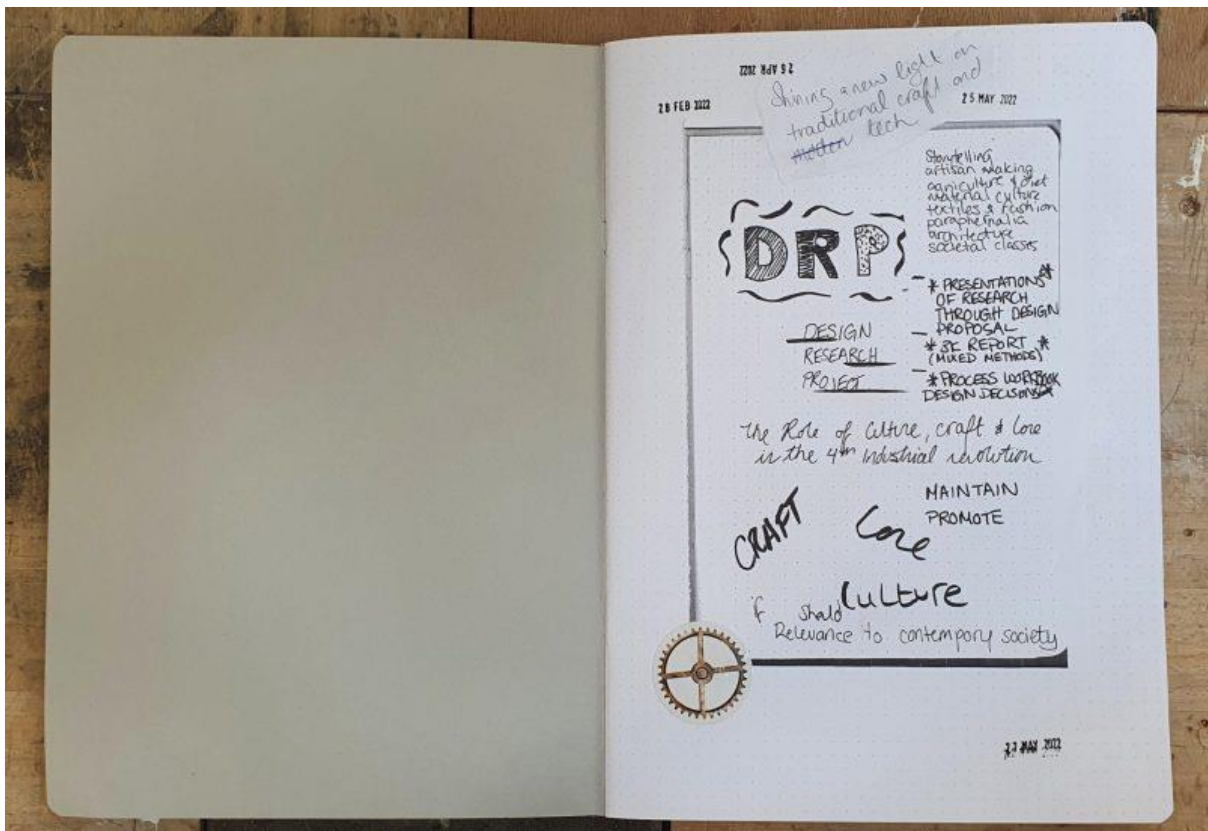 26 APR 2022
28 FEB 2022
25 MAY 2022
Shining a new light on
traditional craft and
tech
Storytelling
artisan making
agriculture & diet
material culture
textiles & fashion
paraphernalia
architecture
societal classes
DRP
* PRESENTATIONS *
OF RESEARCH
THROUGH DESIGN
PROPOSAL
* 3K REPORT *
(MIXED METHODS)
* PROCESS WORKBOOK
DESIGN DECISIONS *
DESIGN
RESEARCH
PROJECT
The Role of Culture, craft & lore
in the 4th Industrial revolution
MAINTAIN
PROMOTE
CRAFT
Lore
Culture
if should
Relevance to contempory society
MAY 2022